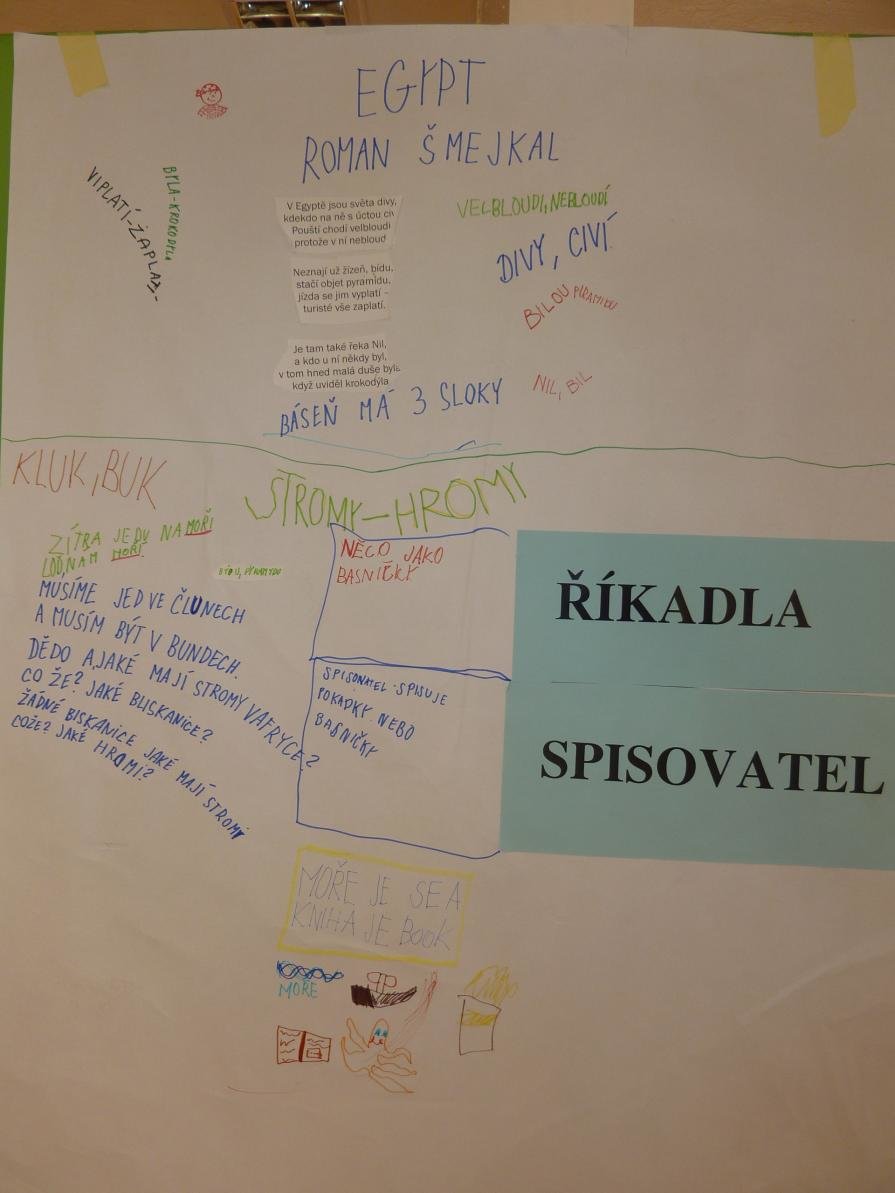 EGYPT
ROMAN ŠMEJKAL
V Egyptě jsou světa divy,
kdekdo na ně s úctou civ
Pouští chodí velbloudi
protože v ní nebloud
Neznají už žízeň, bídu,
stačí objet pyramidu,
jízda se jim vyplatí –
turisté vše zaplatí.
Je tam také řeka Nil,
a kdo u ní někdy byl,
v tom hned malá duše byla
když uviděl krokodýla
VIPLATÍ-ŽAPLAZ-
BYLA-KROKODELA
VELBLOUDI, NEBLOUDÍ
DIVY, CIVÍ
BILOU PIRAMIDU
NIL, BIL
BÁSEŇ MÁ 3 SLOKY
KLUK, BUK
STROMY-HROMY
ZÍTRA JEDU NA MOŘI
LOĎ, NAM MOŘÍ.
BÝDU, PYRAMYDU
MUSÍME JED VE ČLUNECH
A MUSÍM BÝT V BUNDECH.
DĚDO A, JAKÉ MAJÍ STROMY VAFRYCE?
CO ŽE? JAKÉ BLISKANICE?
ŽÁDNÉ BISKANICE JAKÉ MAJÍ STROMY
COŽE? JAKÉ HROMI?
NĚCO JAKO
BASNIČKY
ŘÍKADLA
SPISOVATEL SPISUJE
POKADKY NEBO
BASNIČKY
SPISOVATEL
MOŘE JE SEA
KNIHA JE BOOK
MOŘE